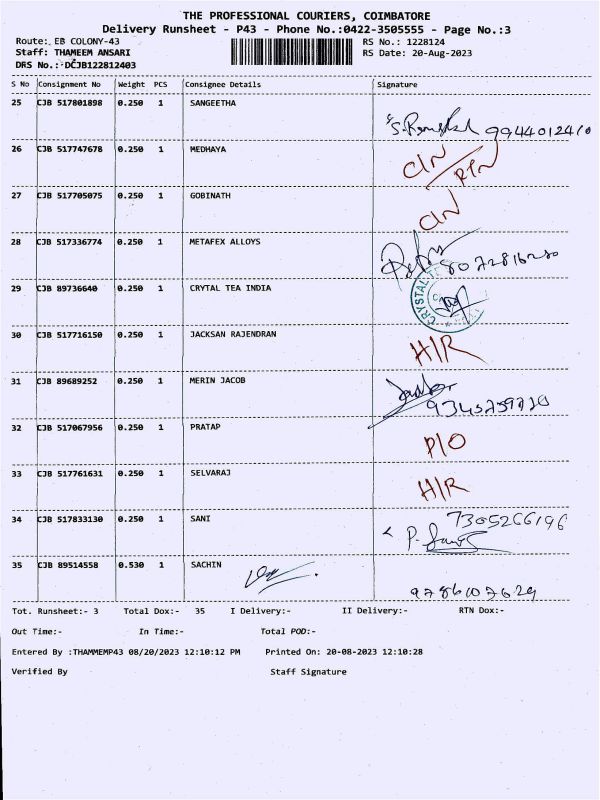 THE PROFESSIONAL COURIERS, COIMBATORE
Delivery Runsheet - P43 - Phone No.:0422-3505555 - Page No.:3
Route:. EB COLONY-43 RS No.: 1228124
Staff: THAMEEM ANSARI RS Date: 20-Aug-2023
DRS No.: DCJB122812403
S No Consignment No Weight PCS Consignee Details Signature
25 CJB 517801898 0.250 1 SANGEETHA
9944012410
26 CJB 517747678 0.250 1 MEDHAYA CIN/RTN
27 CJB 517705075 0.250 1 GOBINATH CIN
28 CJB 517336774 0.250 1 METAFEX ALLOYS
29 CJB 89736640 0.250 1 CRYTAL TEA INDIA CRYSTAL
30 CJB 517716150 0.250 1 JACKSAN RAJENDRAN H/R
31 CJB 89689252 0.250 1 MERIN JACOB
32 CJB 517067956 0.250 1 PRATAP P/O
33 CJB 517761631 0.250 1 SELVARAJ H/R
34 CJB 517833130 0.250 1 SANI 7305266196
35 CJB 89514558 0.530 1 SACHIN
9786107629
Tot. Runsheet:- 3 Total Dox:- 35 I Delivery:- II Delivery:- RTN Dox:-
Out Time:- In Time:- Total POD:-
Entered By :THAMMEMP43 08/20/2023 12:10:12 PM Printed On: 20-08-2023 12:10:28
Verified By Staff Signature